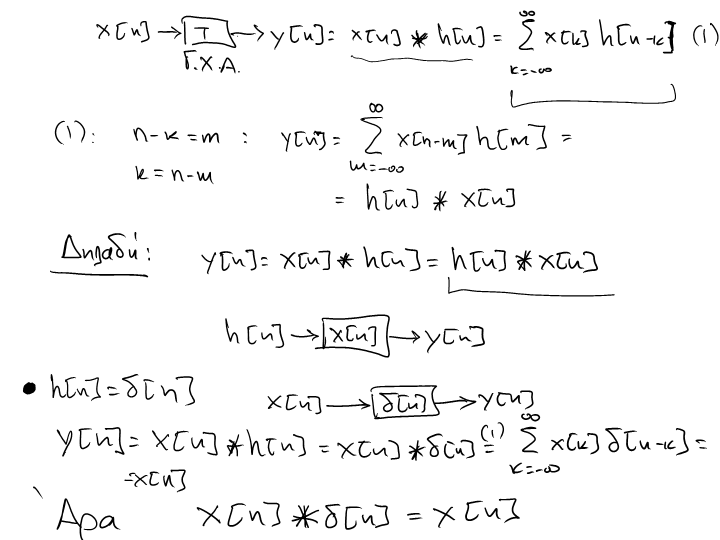 x[n] → [T] → y[n] = x[n] * h[n] = ∑_{k=-∞}^{∞} x[k] h[n-k] (1)
Γ.Χ.Α.
(1): n-k=m : y[n] = ∑_{m=-∞}^{∞} x[n-m] h[m] =
k = n-m
= h[n] * x[n]
Δηλαδή: y[n] = x[n] * h[n] = h[n] * x[n]
h[n] → [x[n]] → y[n]
• h[n] = δ[n] x[n] → [δ[n]] → y[n]
y[n] = x[n] * h[n] = x[n] * δ[n] =^{(1)} ∑_{k=-∞}^{∞} x[k] δ[n-k] =
= x[n]
Άρα x[n] * δ[n] = x[n]